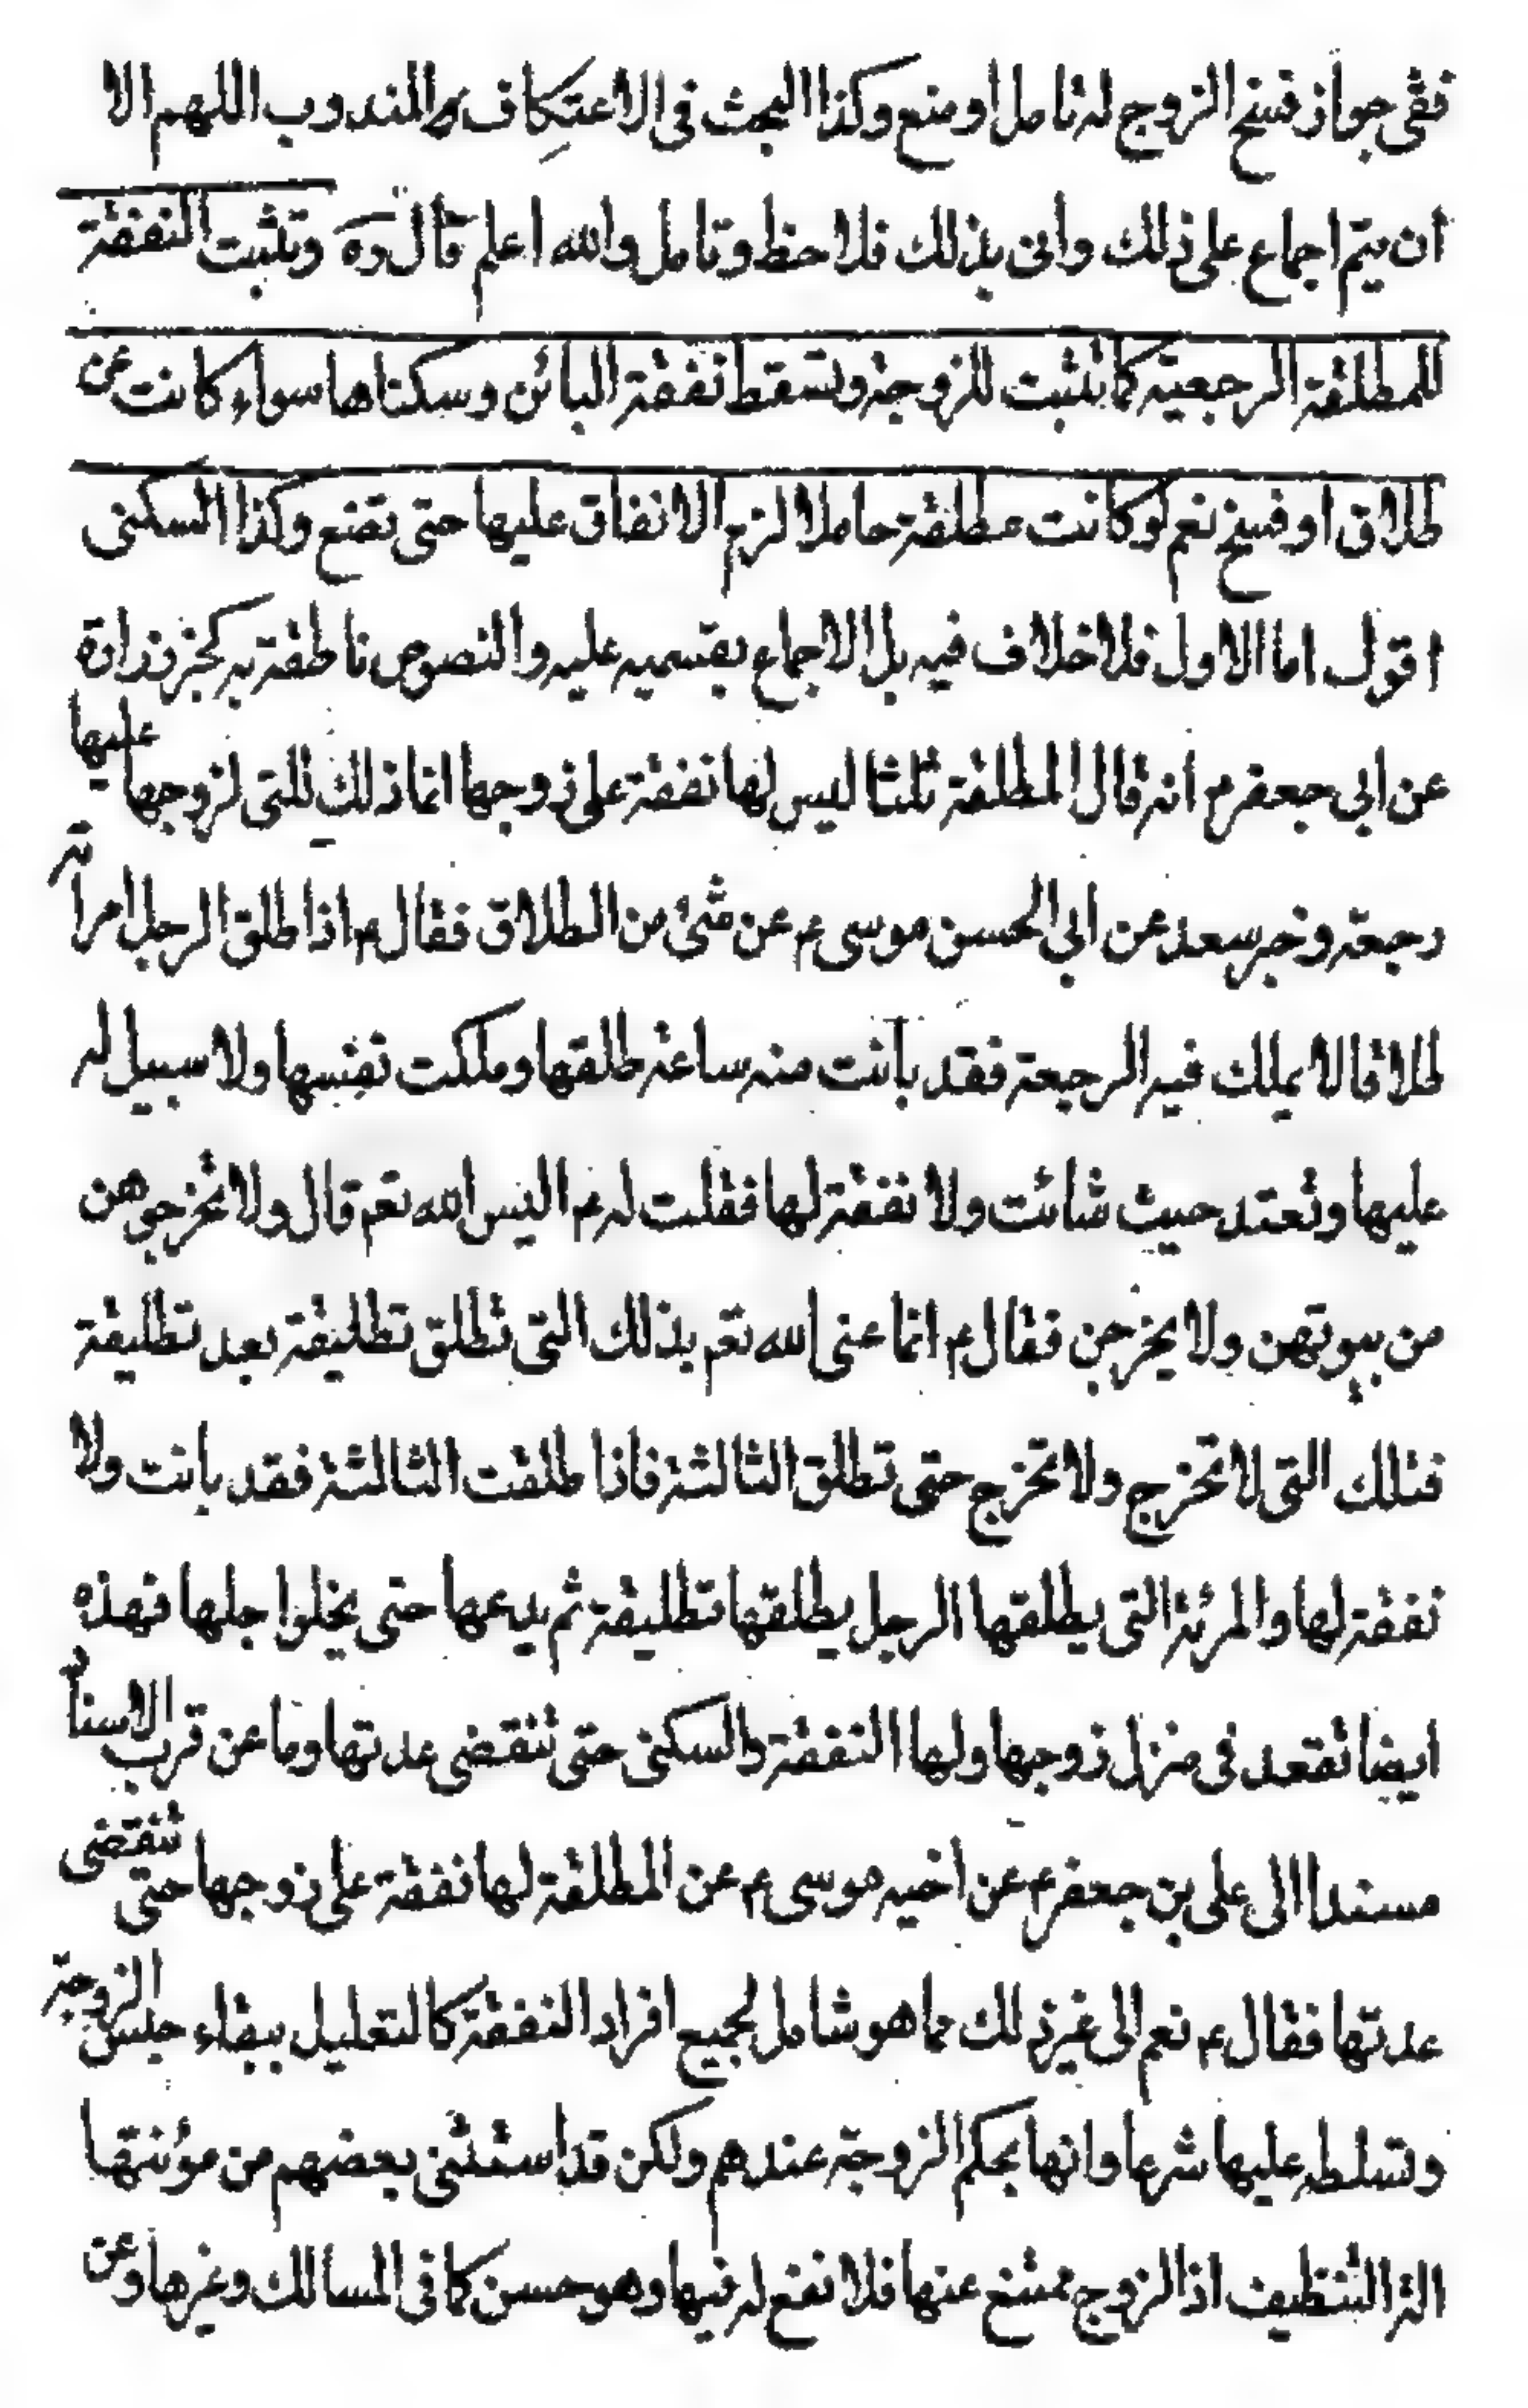 ففى جواز فسخ الزوج له تامل او منع وكذا البحث فى الاعتكاف المندوب اللهم الا
ان يتم اجماع على ذلك وانى بذلك فلاحظ وتامل والله اعلم قال ره وتثبت النفقة
للمطلقة الرجعية كما تثبت للزوجة وتسقط نفقة البائن وسكناها سواء كانت عن
طلاق او فسخ نعم لو كانت مطلقة حاملا لزم الانفاق عليها حتى تضع وكذا السكنى
اقول اما الاول فلا خلاف فيه بل الاجماع بقسميه عليه والنصوص ناطقة به كخبر زرارة
عن ابي جعفر ع انه قال المطلقة ثلثا ليس لها نفقة على زوجها انما ذلك للتى لزوجها عليها
رجعة وخبر سعد عن ابي الحسن موسى ع عن شئ من الطلاق فقال ع اذا طلق الرجل امراته
طلاقا لا يملك فيه الرجعة فقد بانت منه ساعة طلقها وملكت نفسها ولا سبيل له
عليها وتعتد حيث شائت ولا نفقة لها فقلت له ع اليس الله تعم قال ولا تخرجوهن
من بيوتهن ولا يخرجن فقال ع انما عنى الله تعم بذلك التى تطلق تطليقة بعد تطليقة
فتلك التى لا تخرج ولا تخرج حتى تطلق الثالثة فاذا طلقت الثالثة فقد بانت ولا
نفقة لها والمرئة التى يطلقها الرجل يطلقها تطليقة ثم يدعها حتى يخلوا جلها فهذه
ايضا تقعد فى منزل زوجها ولها النفقة والسكنى حتى تنقضى عدتها وما عن قرب الاسناد
مسندا الى على بن جعفر ع عن اخيه موسى ع عن المطلقة لها نفقة على زوجها حتى تنقضى
عدتها فقال ع نعم الى غير ذلك مما هو شامل لجميع افراد النفقة كالتعليل ببقاء حبس الزوجة
وتسلطه عليها شرعا وانها بحكم الزوجة عندهم ولكن قد استثنى بعضهم من مؤنتها
الة التنظيف اذ الزوج ممتنع عنها فلا نفع له فيها وهو حسن كما فى المسالك وغيرها وعن